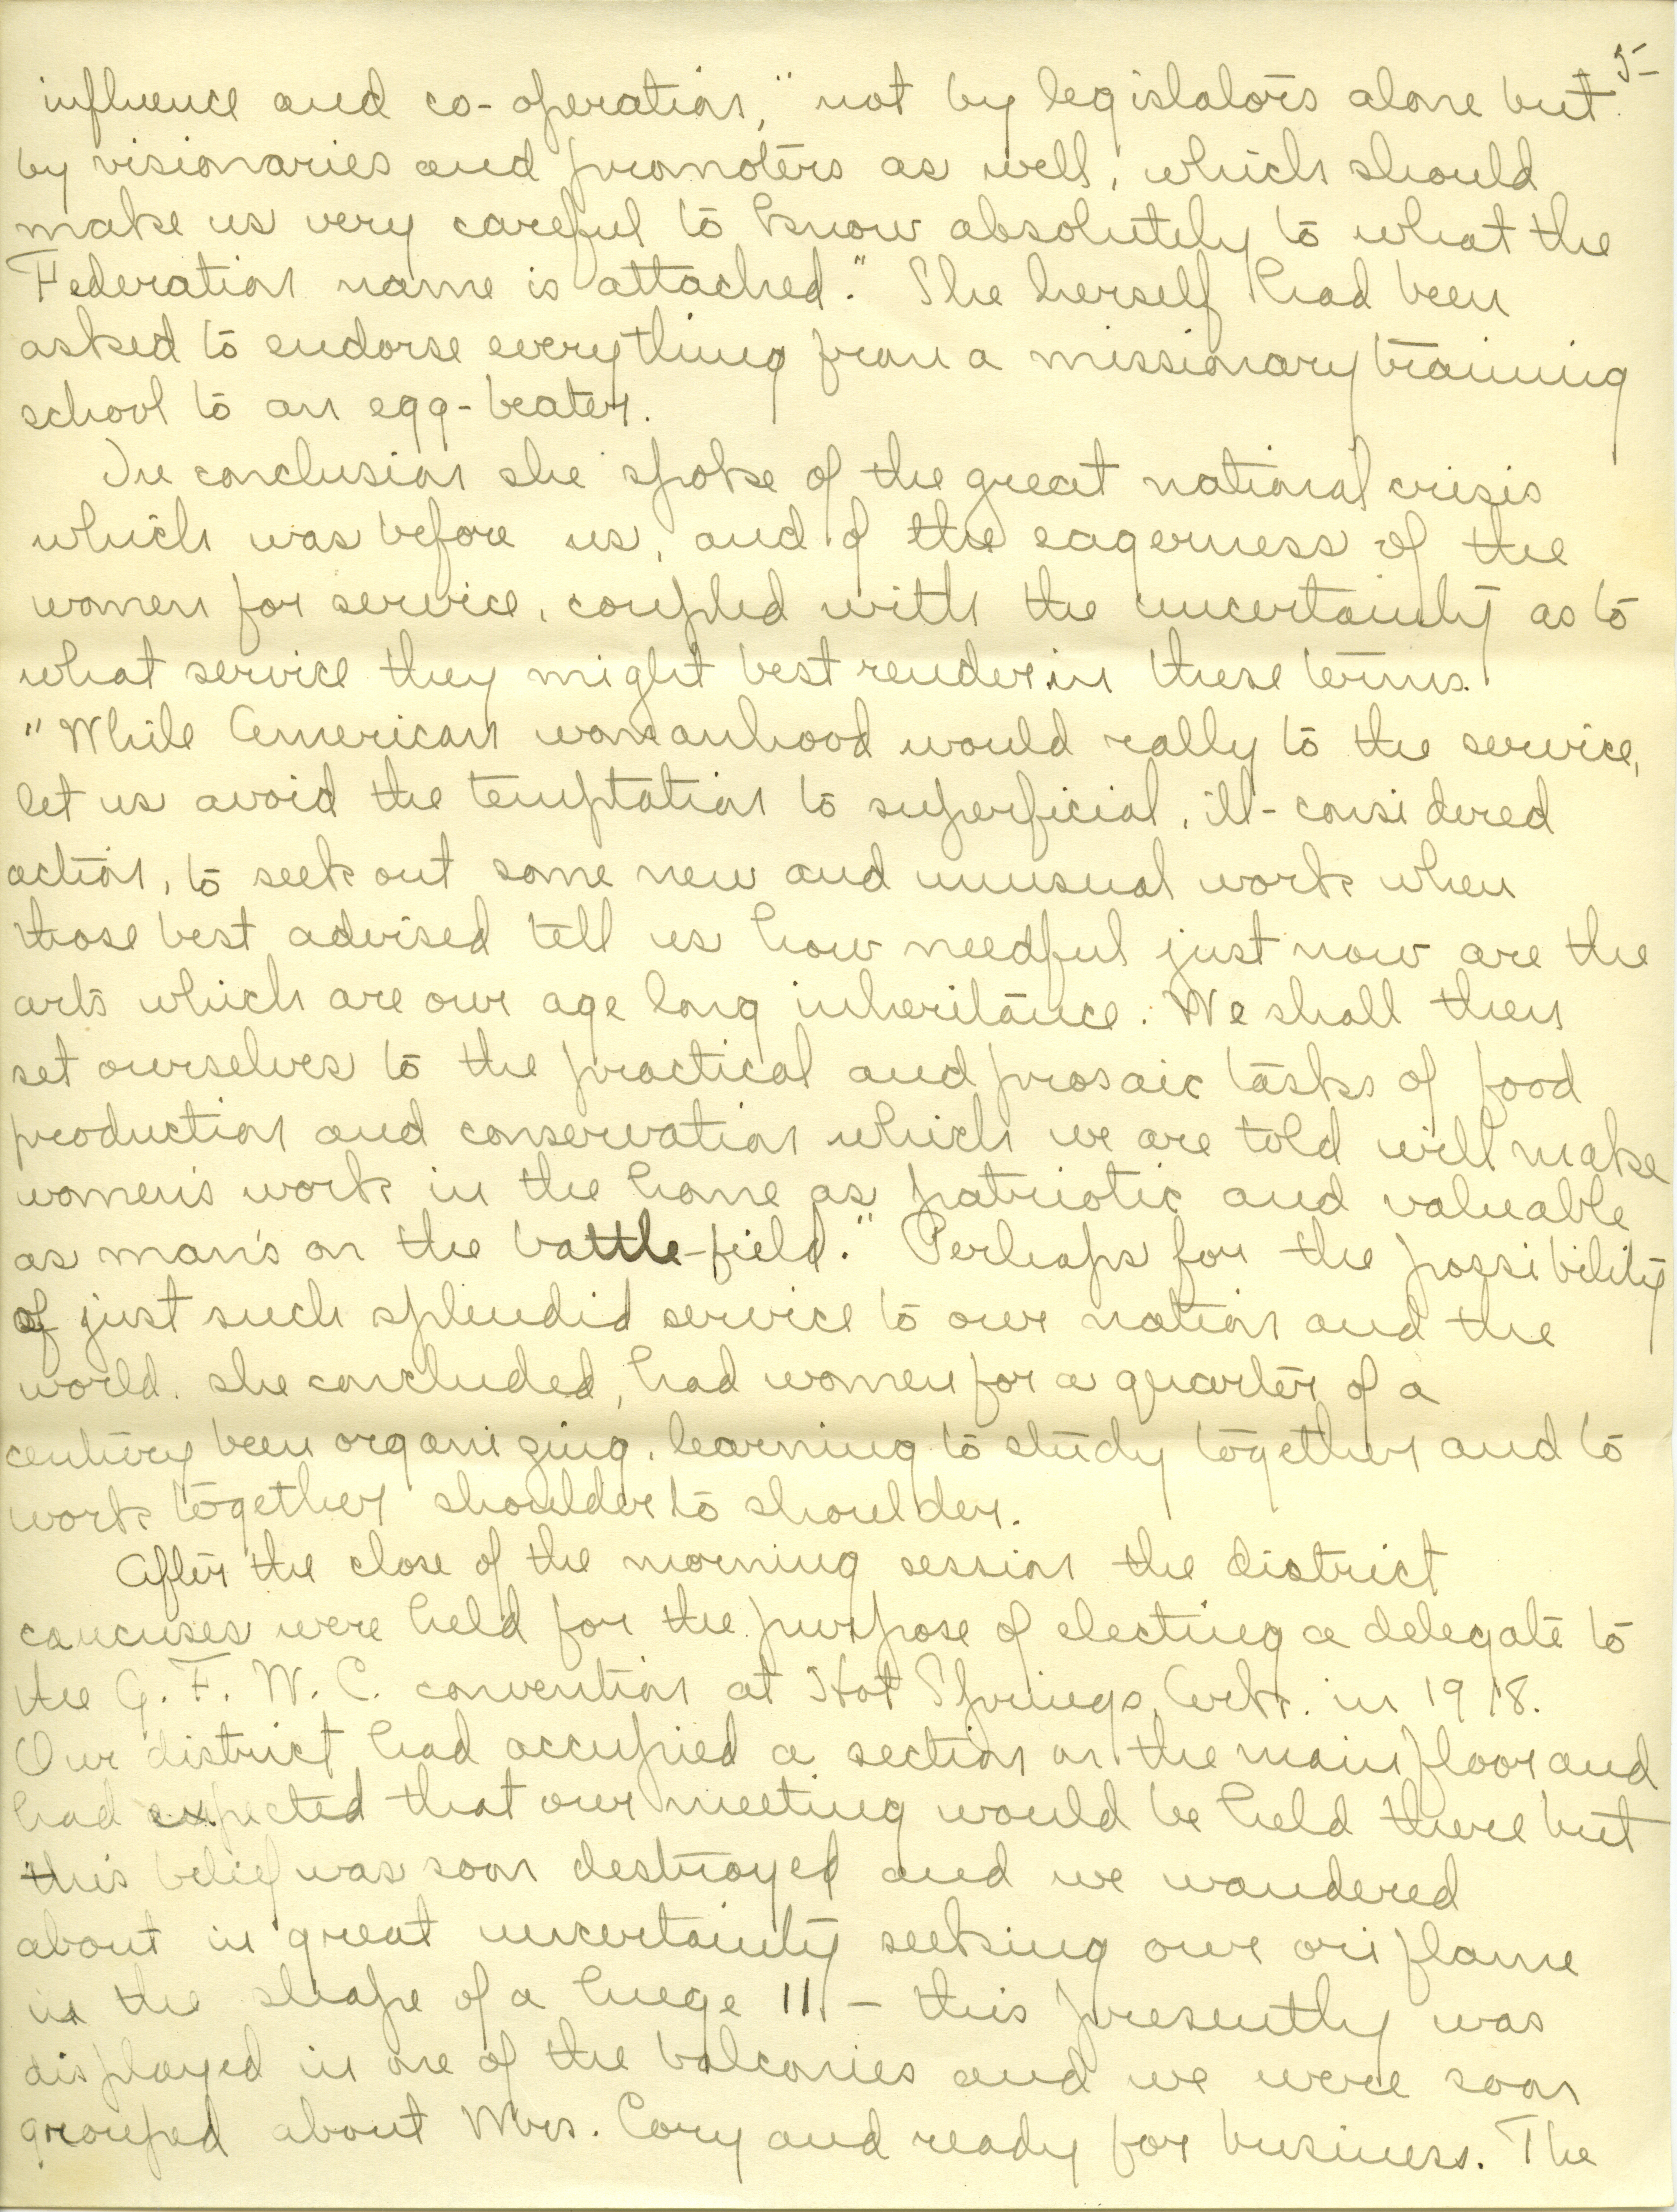 5-
influence and co-operation," not by legislators alone but
by visionaries and promoters as well, which should
make us very careful to know absolutely to what the
Federation name is attached." She herself had been
asked to endorse everything from a missionary training
school to an egg-beater.
In conclusion she spoke of the great national crisis
which was before us, and of the eagerness of the
women for service, coupled with the uncertainty as to
what service they might best render in these terms.
"While American womanhood would rally to the service,
let us avoid the temptation to superficial, ill-considered
action, to seek out some new and unusual work when
those best advised tell us how needful just now are the
arts which are our age long inheritance. We shall then
set ourselves to the practical and prosaic tasks of food
production and conservation which we are told will make
women's work in the home as patriotic and valuable
as man's on the battle-field." Perhaps for the possibility
of just such splendid service to our nation and the
world, she concluded, had women for a quarter of a
century been organizing, learning to study together and to
work together shoulder to shoulder.
After the close of the morning session the district
caucuses were held for the purpose of electing a delegate to
the G. F. W. C. convention at Hot Springs, Ark. in 1918.
Our district had occupied a section on the main floor and
had expected that our meeting would be held there but
this belief was soon destroyed and we wandered
about in great uncertainty seeking our oriflame
in the shape of a huge 11. - this presently was
displayed in one of the balconies and we were soon
grouped about Mrs. Cory and ready for business. The